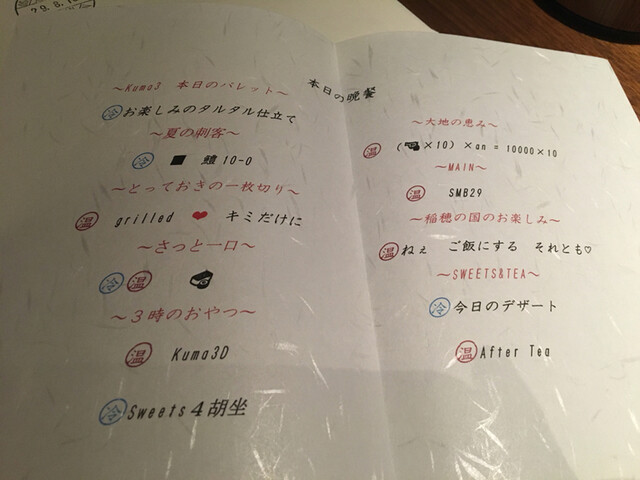 29.8.
本日の晩餐
～Kuma3 本日のパレット～
冷 お楽しみのタルタル仕立て
～夏の刺客～
冷 ■ 鱧10-0
～とっておきの一枚切り～
温 grilled ❤ キミだけに
～さっと一口～
冷 温
～3時のおやつ～
温 Kuma3D
冷 Sweets4胡坐
～大地の恵み～
温 (×10)×an=10000×10
～MAIN～
温 SMB29
～稲穂の国のお楽しみ～
温 ねぇ ご飯にする それとも♡
～SWEETS&TEA～
冷 今日のデザート
温 After Tea